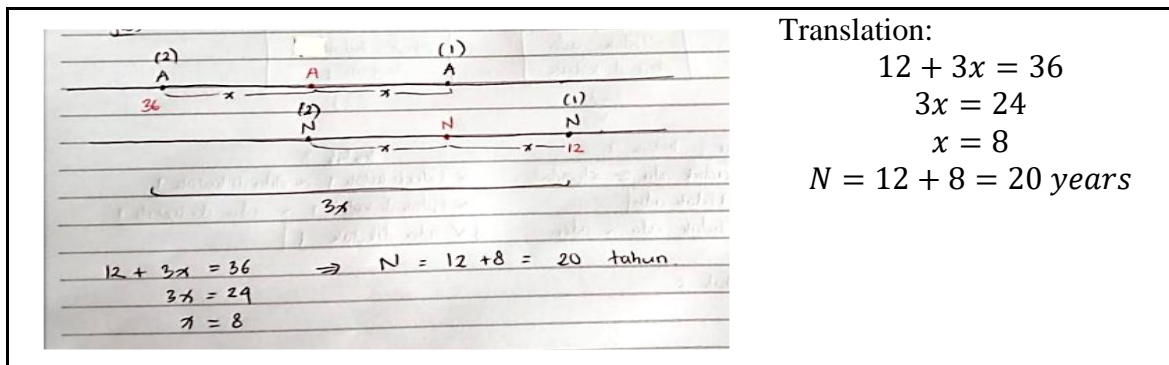 (2) (1)
A A A
x x
36
(2) (1)
N N N
x x 12
3x
12 + 3x = 36 ⇒ N = 12 + 8 = 20 tahun
3x = 24
x = 8
Translation:
12 + 3𝑥 = 36
3𝑥 = 24
𝑥 = 8
𝑁 = 12 + 8 = 20 𝑦𝑒𝑎𝑟𝑠